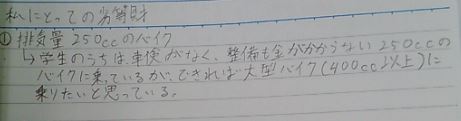 私にとっての劣等財
① 排気量250ccのバイク
↳学生のうちは、車検がなく、整備も金がかからない250ccの
バイクに乗っているが、できれば大型バイク(400cc以上)に
乗りたいと思っている。